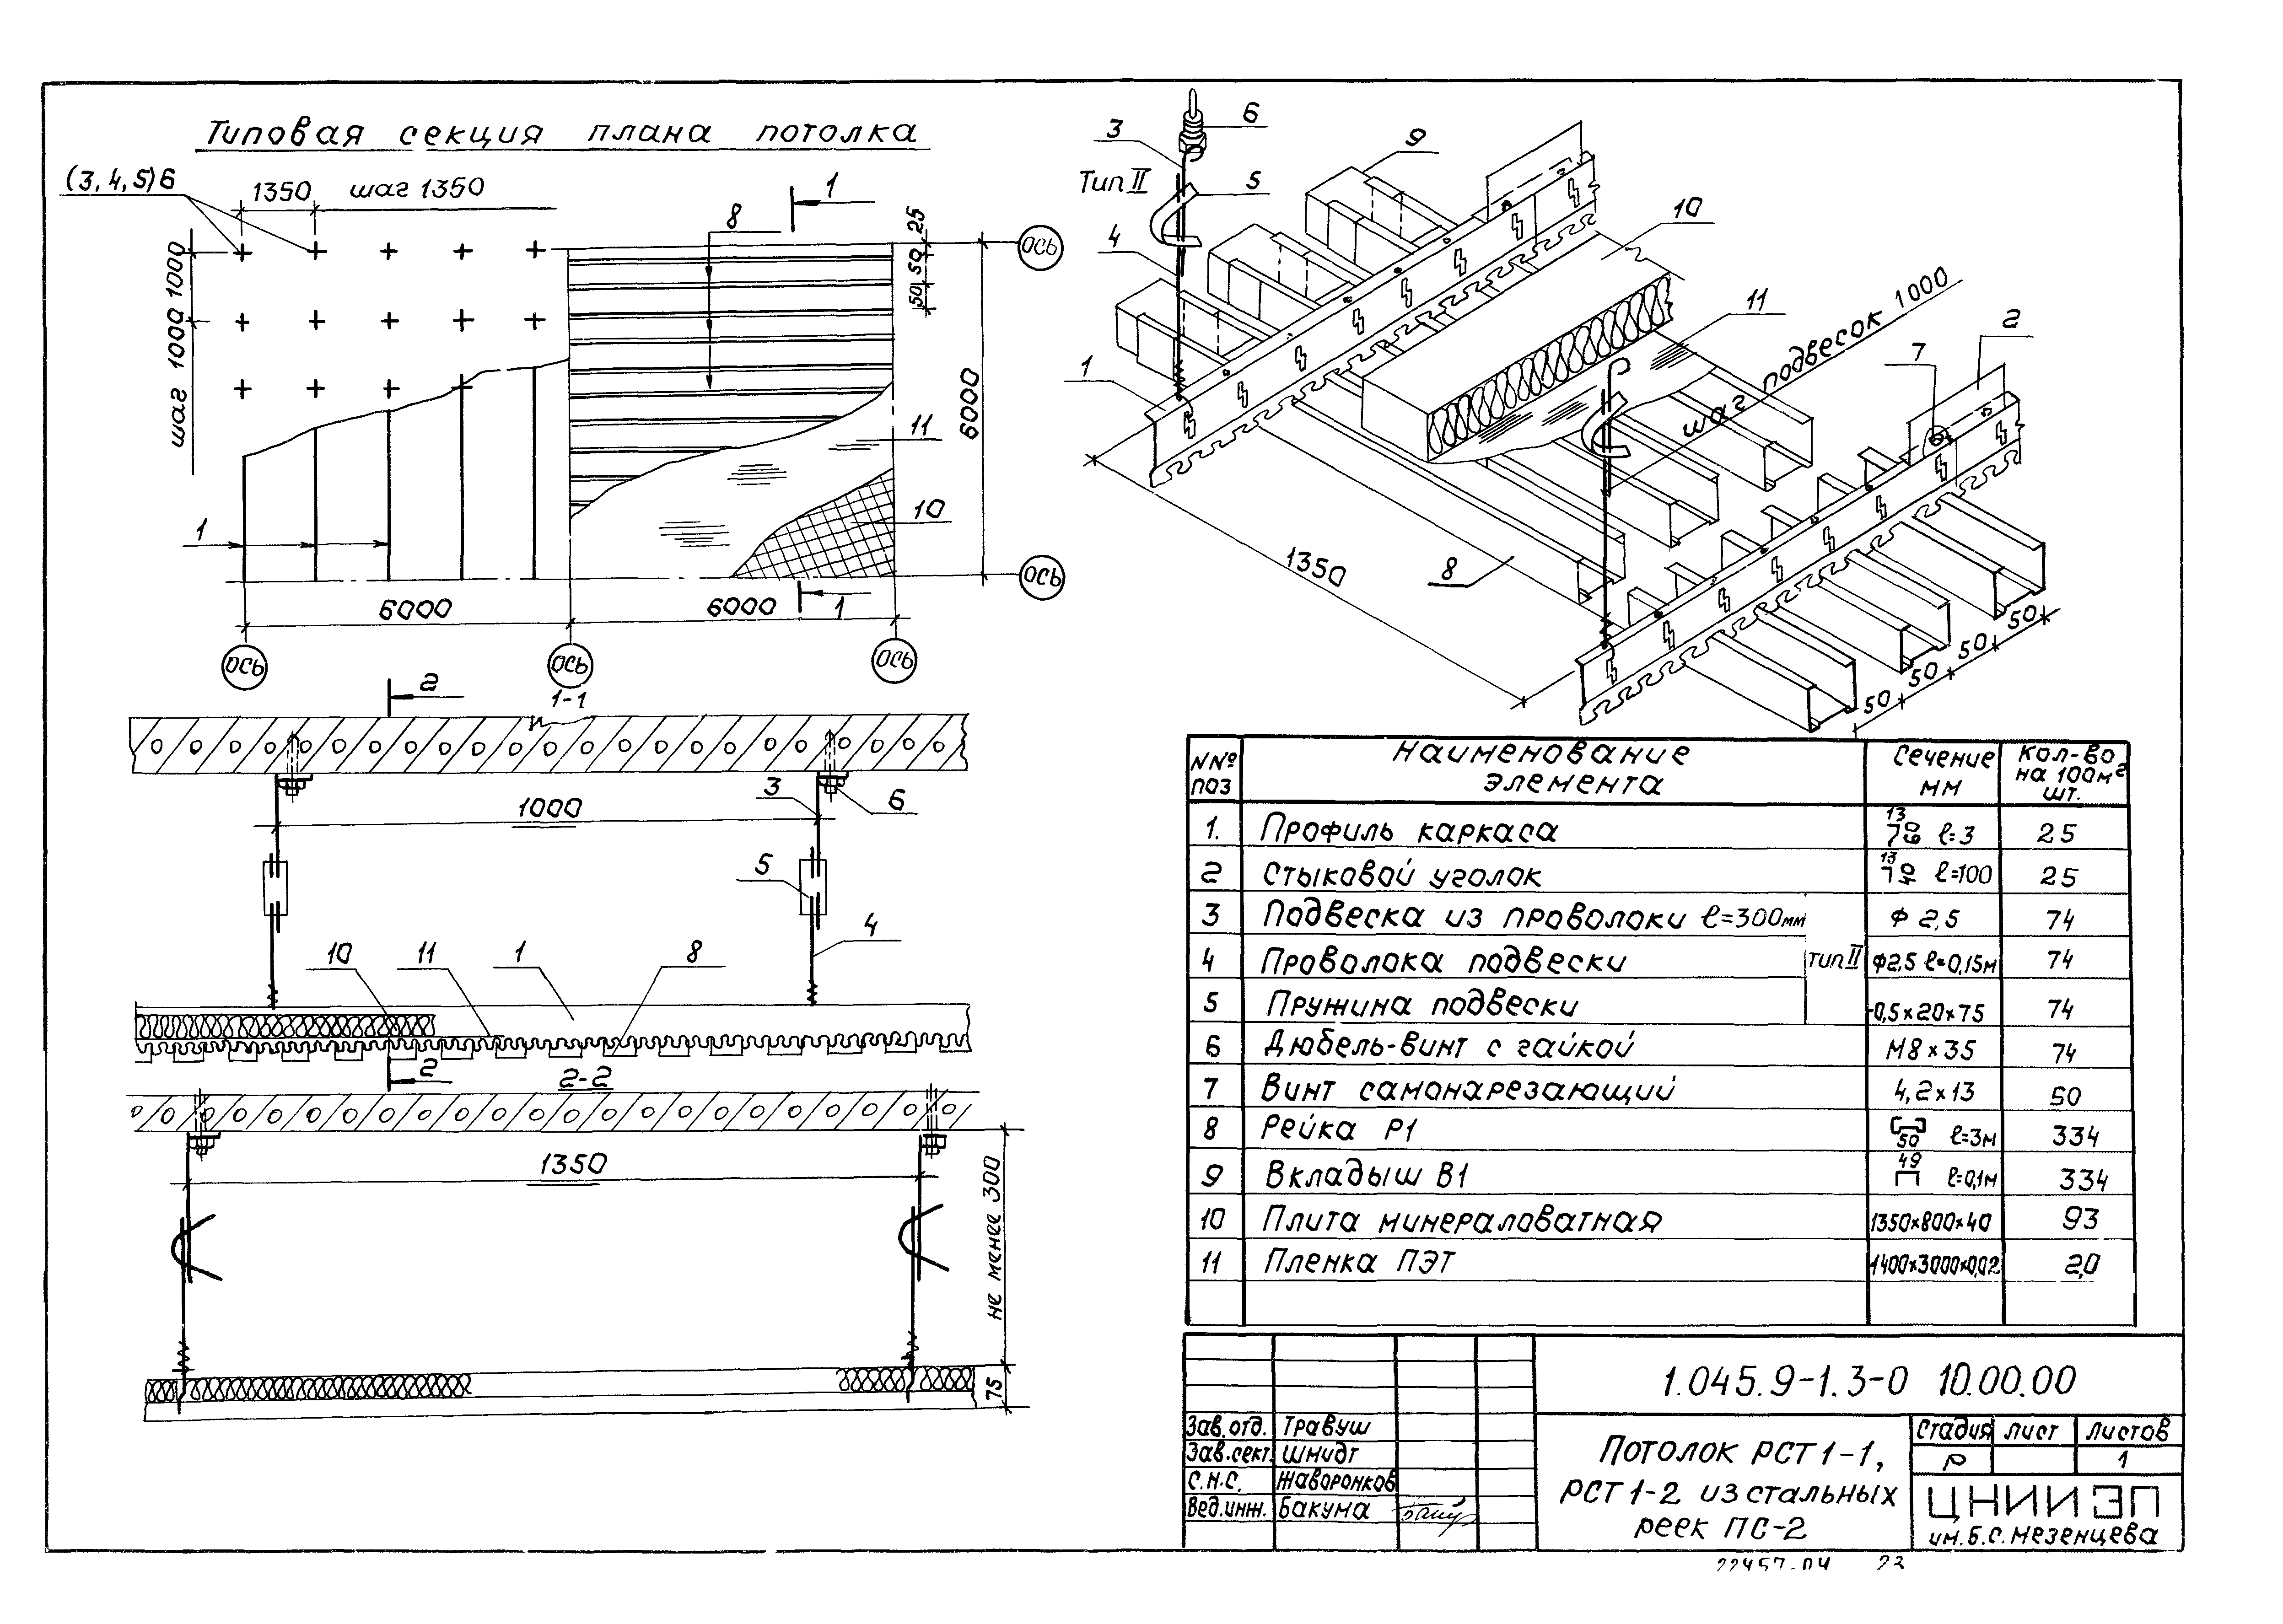 Типовая секция плана потолка
(3, 4, 5) 6
1350 шаг 1350
8
1
25
50
50
ось
шаг 1000 1000
6000
11
10
1
ось
6000
6000
1
ось
ось
ось
1-1
2
1000
3
6
5
4
10
11
1
8
2
2-2
1350
не менее 300
75
6
3
Тип II
5
4
9
10
11
1
шаг подвесок 1000
2
7
1350
8
50
50
50
50
NNº поз
Наименование элемента
Сечение мм
Кол-во на 100м² шт.
1. Профиль каркаса 13 78 ℓ=3 25
2 Стыковой уголок 13 ℓ=100 25
3 Подвеска из проволоки ℓ=300мм ф 2,5 74
4 Проволока подвески тип II ф2,5 ℓ=0,15м 74
5 Пружина подвески -0,5×20×75 74
6 Дюбель-винт с гайкой М8×35 74
7 Винт самонарезающий 4,2×13 50
8 Рейка Р1 50 ℓ=3м 334
9 Вкладыш В1 49 ℓ=0,1м 334
10 Плита минераловатная 1350×800×40 93
11 Пленка ПЭТ 1400×3000×0,02 2,0
1.045.9-1.3-0 10.00.00
Зав. отд. Травуш
Зав. сект. Шмидт
С.Н.С. Жаворонков
Вед. инж. Бакума
Потолок РСТ1-1,
РСТ1-2 из стальных
реек ПС-2
Стадия лист листов
Р 1
ЦНИИЭП
им. Б.С. Мезенцева
22457-04 23